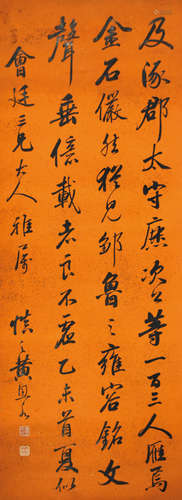 及涿郡太守庶次公等一百三人雁焉
金石儼然猶見鄒魯之雍容銘文
聲垂億載者良不虛乙未首夏似
會廷三兄大人雅屬
慎之黃